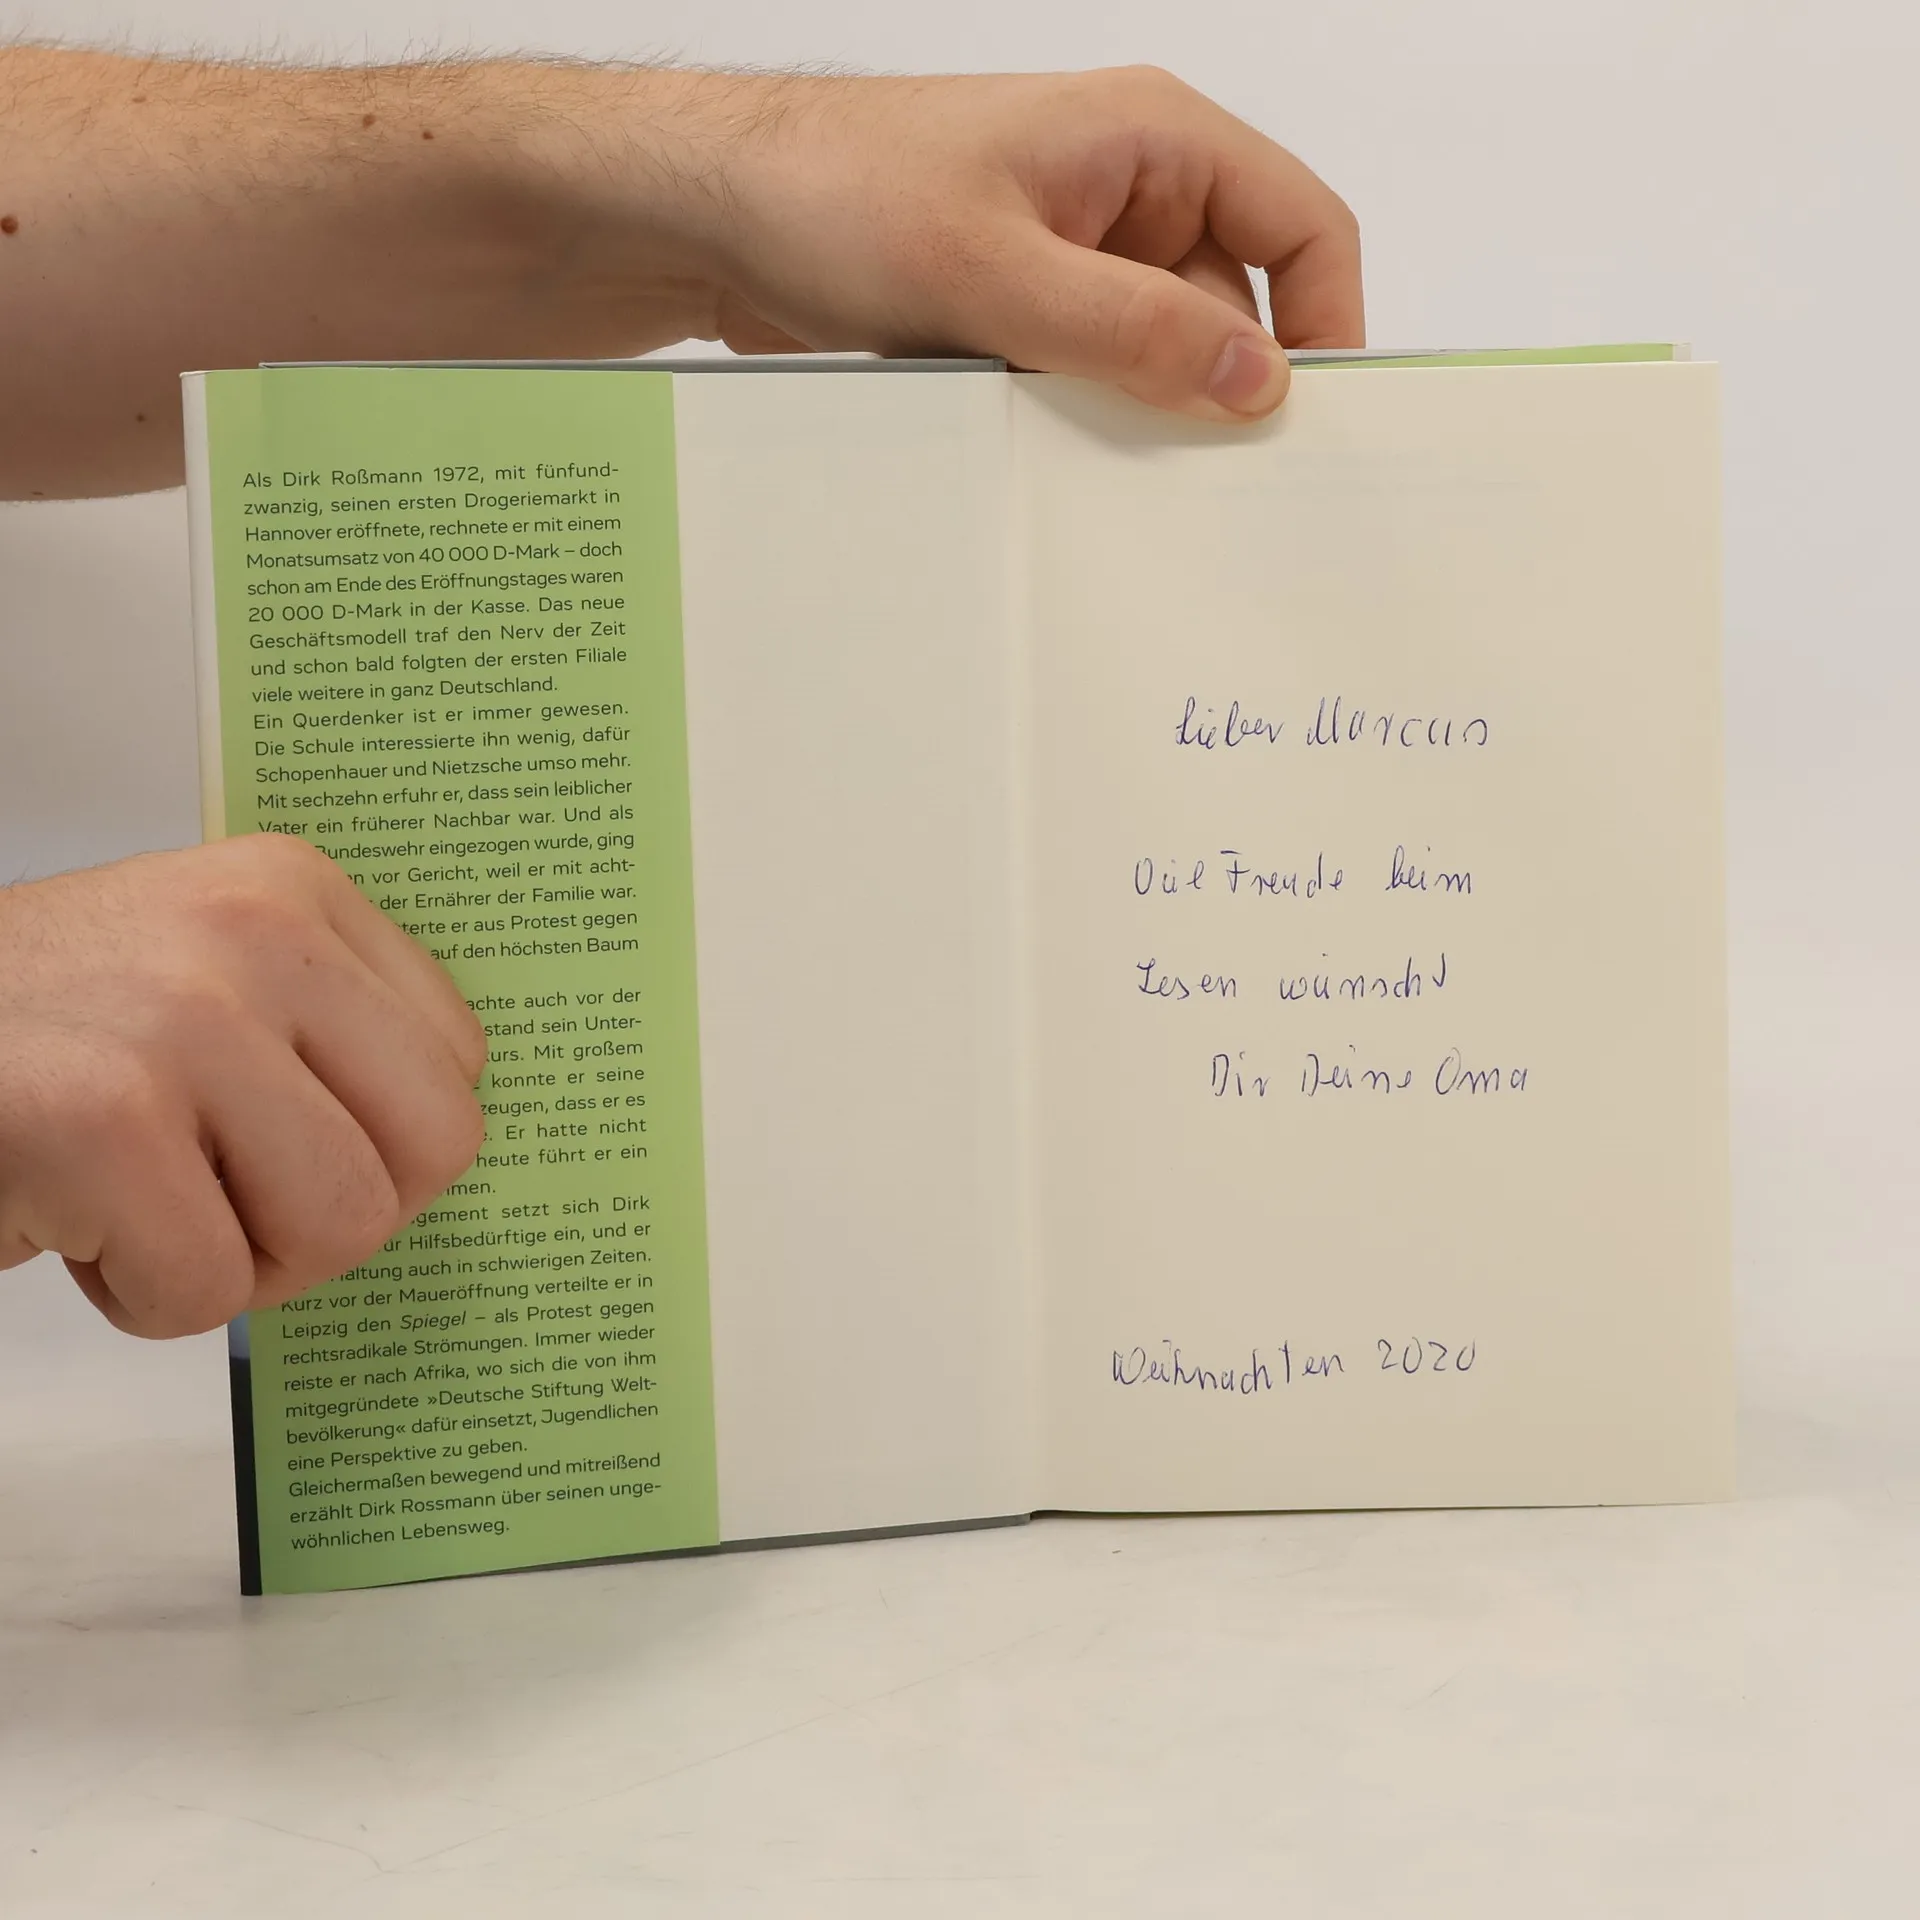 Als Dirk Roßmann 1972, mit fünfund-
zwanzig, seinen ersten Drogeriemarkt in
Hannover eröffnete, rechnete er mit einem
Monatsumsatz von 40 000 D-Mark – doch
schon am Ende des Eröffnungstages waren
20 000 D-Mark in der Kasse. Das neue
Geschäftsmodell traf den Nerv der Zeit
und schon bald folgten der ersten Filiale
viele weitere in ganz Deutschland.
Ein Querdenker ist er immer gewesen.
Die Schule interessierte ihn wenig, dafür
Schopenhauer und Nietzsche umso mehr.
Mit sechzehn erfuhr er, dass sein leiblicher
Vater ein früherer Nachbar war. Und als
Bundeswehr eingezogen wurde, ging
vor Gericht, weil er mit acht-
der Ernährer der Familie war.
er aus Protest gegen
auf den höchsten Baum
auch vor der
sein Unter-
Mit großem
konnte er seine
dass er es
Er hatte nicht
heute führt er ein
setzt sich Dirk
für Hilfsbedürftige ein, und er
auch in schwierigen Zeiten.
Kurz vor der Maueröffnung verteilte er in
Leipzig den Spiegel – als Protest gegen
rechtsradikale Strömungen. Immer wieder
reiste er nach Afrika, wo sich die von ihm
mitgegründete »Deutsche Stiftung Welt-
bevölkerung« dafür einsetzt, Jugendlichen
eine Perspektive zu geben.
Gleichermaßen bewegend und mitreißend
erzählt Dirk Rossmann über seinen unge-
wöhnlichen Lebensweg.
Lieber Marcus
Viel Freude beim
Lesen wünscht
Dir Deine Oma
Weihnachten 2020